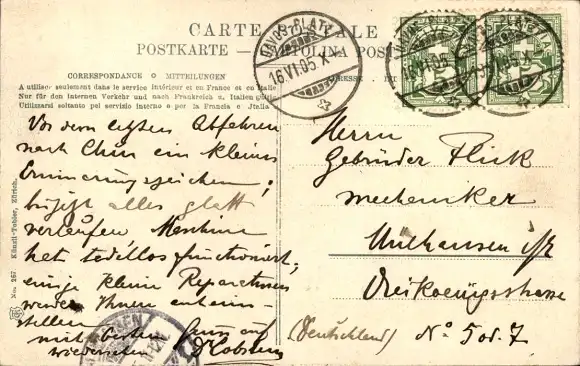 CARTE POSTALE
POSTKARTE — CARTOLINA POST
DAVOS-PLATZ
16.VI.05.X
CORRESPONDANCE o MITTEILUNGEN
ADRESSE
A utiliser seulement dans le service intérieur et en France et en Italie
Nur für den internen Verkehr und nach Frankreich u. Italien gültig
Utilizzarsi soltanto pel servizio interno e per la Francia e Italia
Vor dem letzten Abfahren
nach Chur ein kleines
Erinnerungszeichen;
bis jetzt alles glatt
verlaufen Maschine
hat tadellos functioniert;
einige kleine Reparaturen
werden Ihnen anheim-
stellen
mit besten Gruss auf
wiedersehen
Herrn
Gebrüder Flick
Mechaniker
Mülhausen i/E
Dreikoenigstrasse
(Deutschland) No 5 od. 7
No. 267. Künzli-Tobler, Zürich.